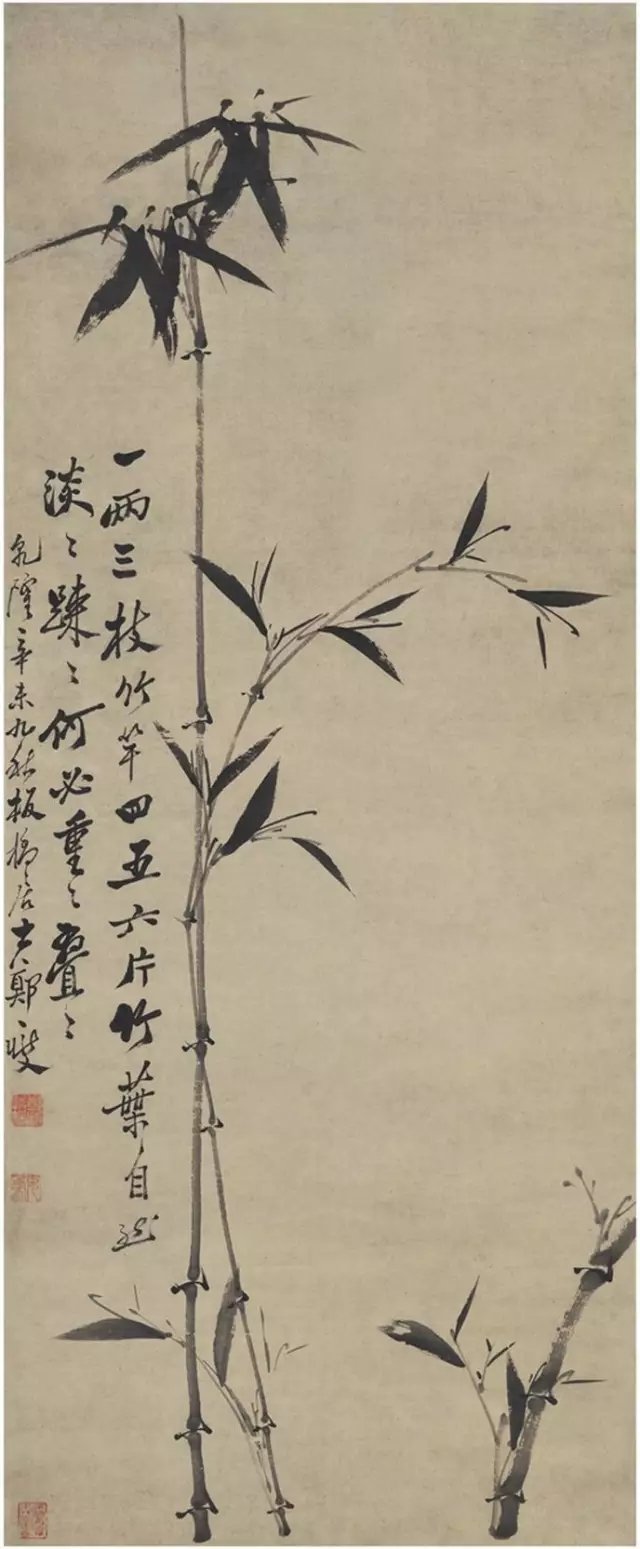 一两三枝竹竿四五六片竹葉自然
淡〻疎〻何必重〻叠〻
乾隆辛未九秋板橋居士鄭燮